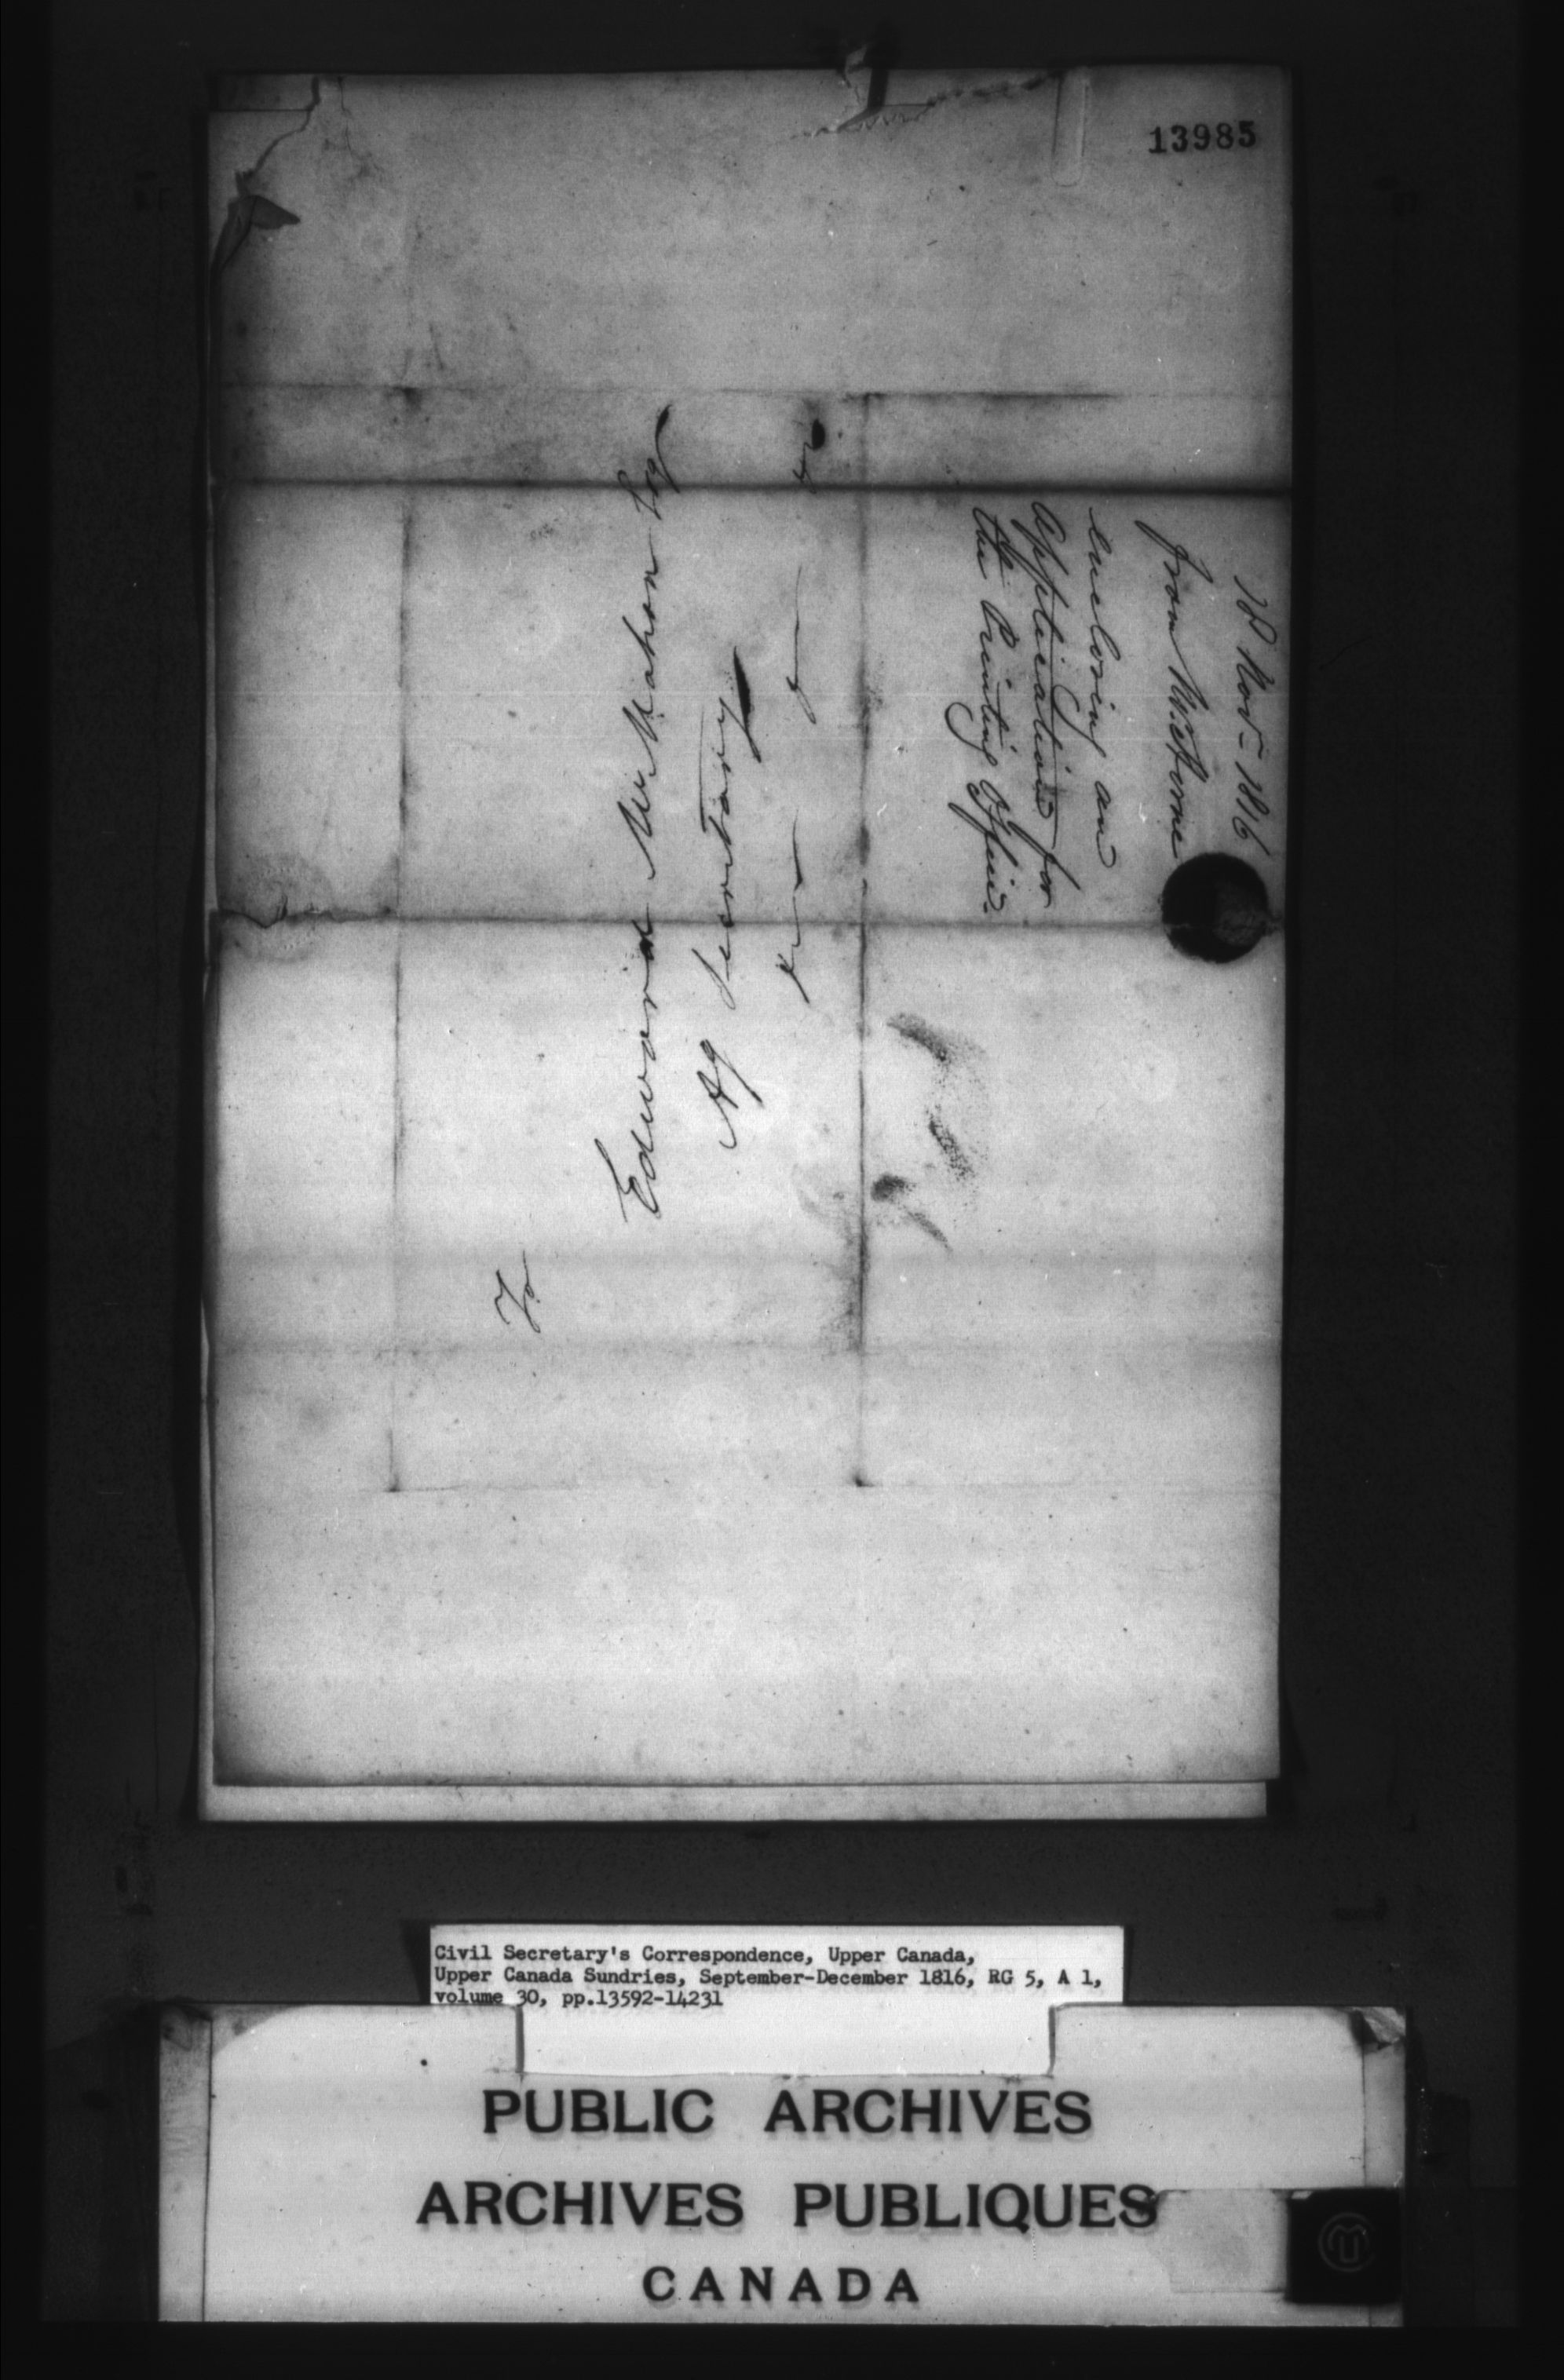 13985
18 Nov - 1816
from Mr Horne
enclosing an
application for
the Printing Office.
To
Edward McMahon Esq
Ag Secretary
&c &c &c
Civil Secretary's Correspondence, Upper Canada,
Upper Canada Sundries, September-December 1816, RG 5, A 1,
volume 30, pp.13592-14231
PUBLIC ARCHIVES
ARCHIVES PUBLIQUES
CANADA